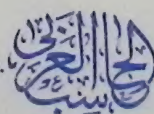 الحاسب العربي